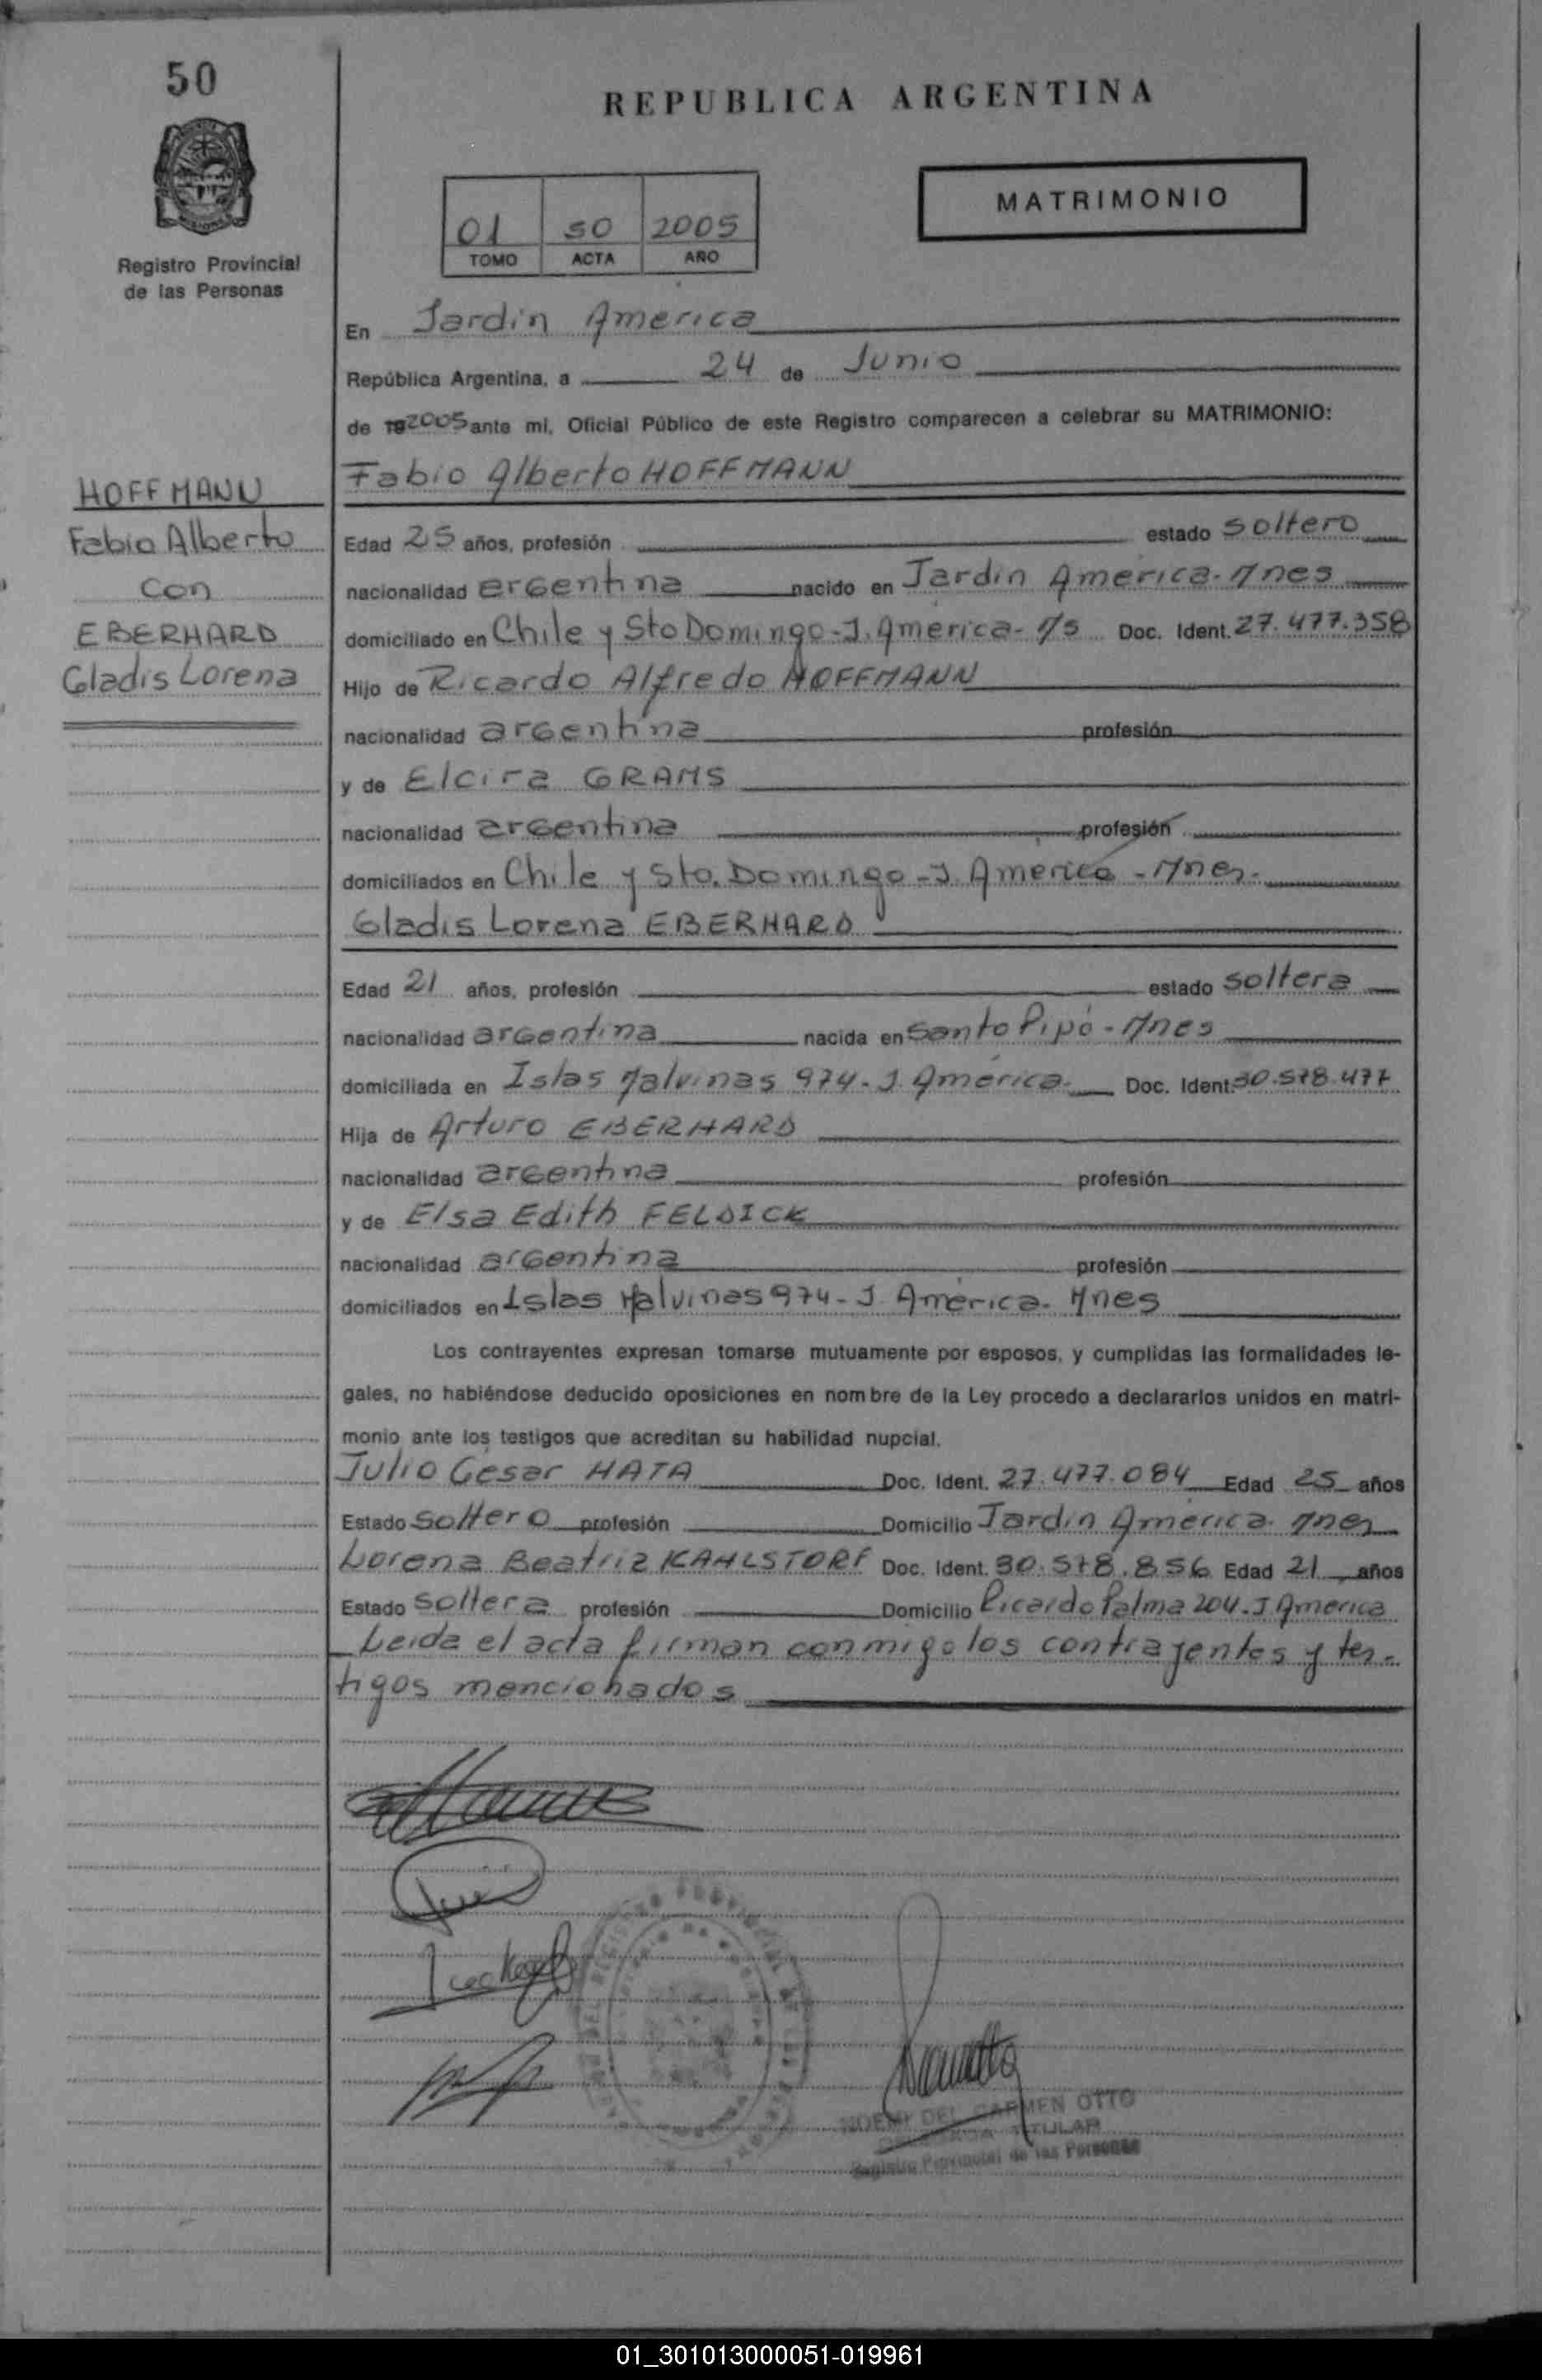 50
REPUBLICA ARGENTINA
MATRIMONIO
01 50 2005
TOMO ACTA AÑO
Registro Provincial
de las Personas
En Jardin America
República Argentina, a 24 de Junio
de 192005 ante mi, Oficial Público de este Registro comparecen a celebrar su MATRIMONIO:
Fabio Alberto HOFFMANN
HOFFMANN
Fabio Alberto
con
EBERHARD
Gladis Lorena
Edad 25 años, profesión estado soltero
nacionalidad argentina nacido en Jardin America - Mnes
domiciliado en Chile y Sto Domingo - J. America - M/s Doc. Ident. 27.477.358
Hijo de Ricardo Alfredo HOFFMANN
nacionalidad argentina profesión
y de Elcira GRAMS
nacionalidad argentina profesión
domiciliados en Chile y Sto. Domingo - J. America - Mnes.
Gladis Lorena EBERHARD
Edad 21 años, profesión estado soltera
nacionalidad argentina nacida en Santo Pipó - Mnes
domiciliada en Islas Malvinas 974 - J. América. Doc. Ident. 30.578.477
Hija de Arturo EBERHARD
nacionalidad argentina profesión
y de Elsa Edith FELDICK
nacionalidad argentina profesión
domiciliados en Islas Malvinas 974 - J. América. Mnes
Los contrayentes expresan tomarse mutuamente por esposos, y cumplidas las formalidades le-
gales, no habiéndose deducido oposiciones en nombre de la Ley procedo a declararlos unidos en matri-
monio ante los testigos que acreditan su habilidad nupcial.
Julio César HATA Doc. Ident. 27.477.084 Edad 25 años
Estado soltero profesión Domicilio Jardin América. Mnes
Lorena Beatriz KAHLSTORF Doc. Ident. 30.578.856 Edad 21 años
Estado soltera profesión Domicilio Ricardo Palma 204. J America
Leida el acta firman conmigo los contrayentes y tes-
tigos mencionados
NOEMI DEL CARMEN OTTO
TITULAR
Registro Provincial de las Personas
01_301013000051-019961